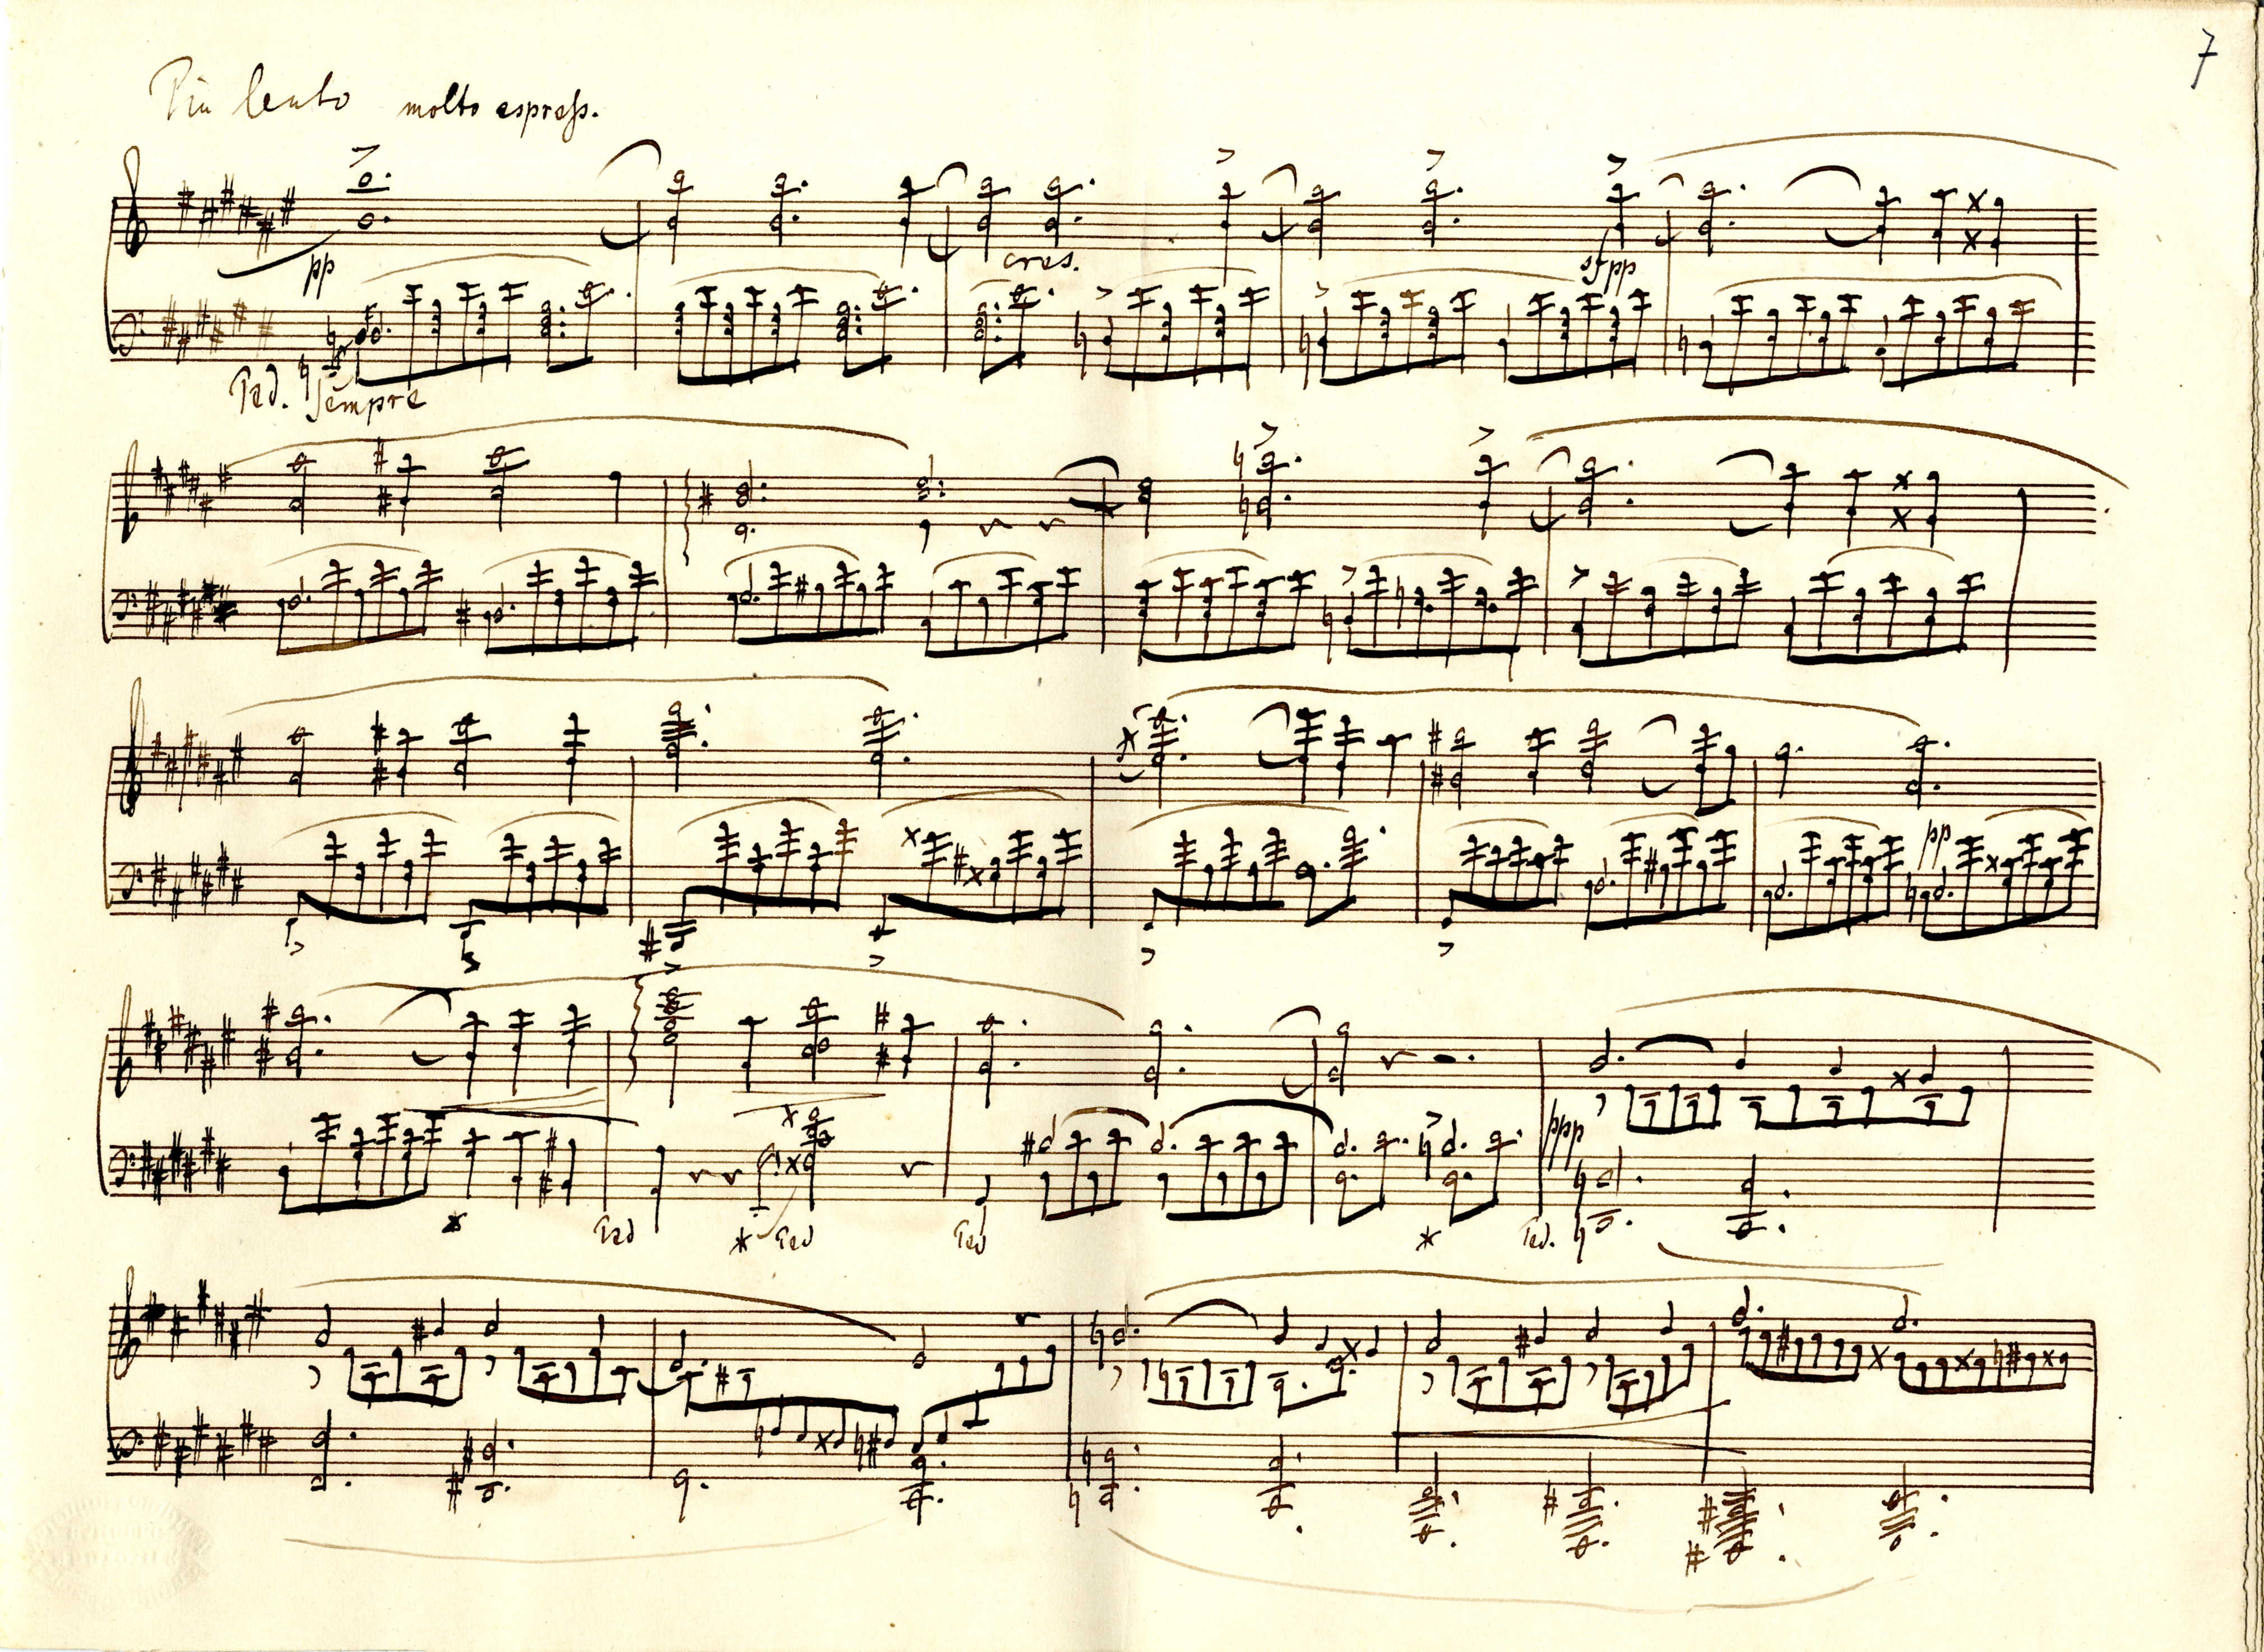 7
Piu lento molto espress.
pp
cres.
sfpp
Ped. sempre
pp
Ped
* Ped
Ped
*
ppp
Ped.